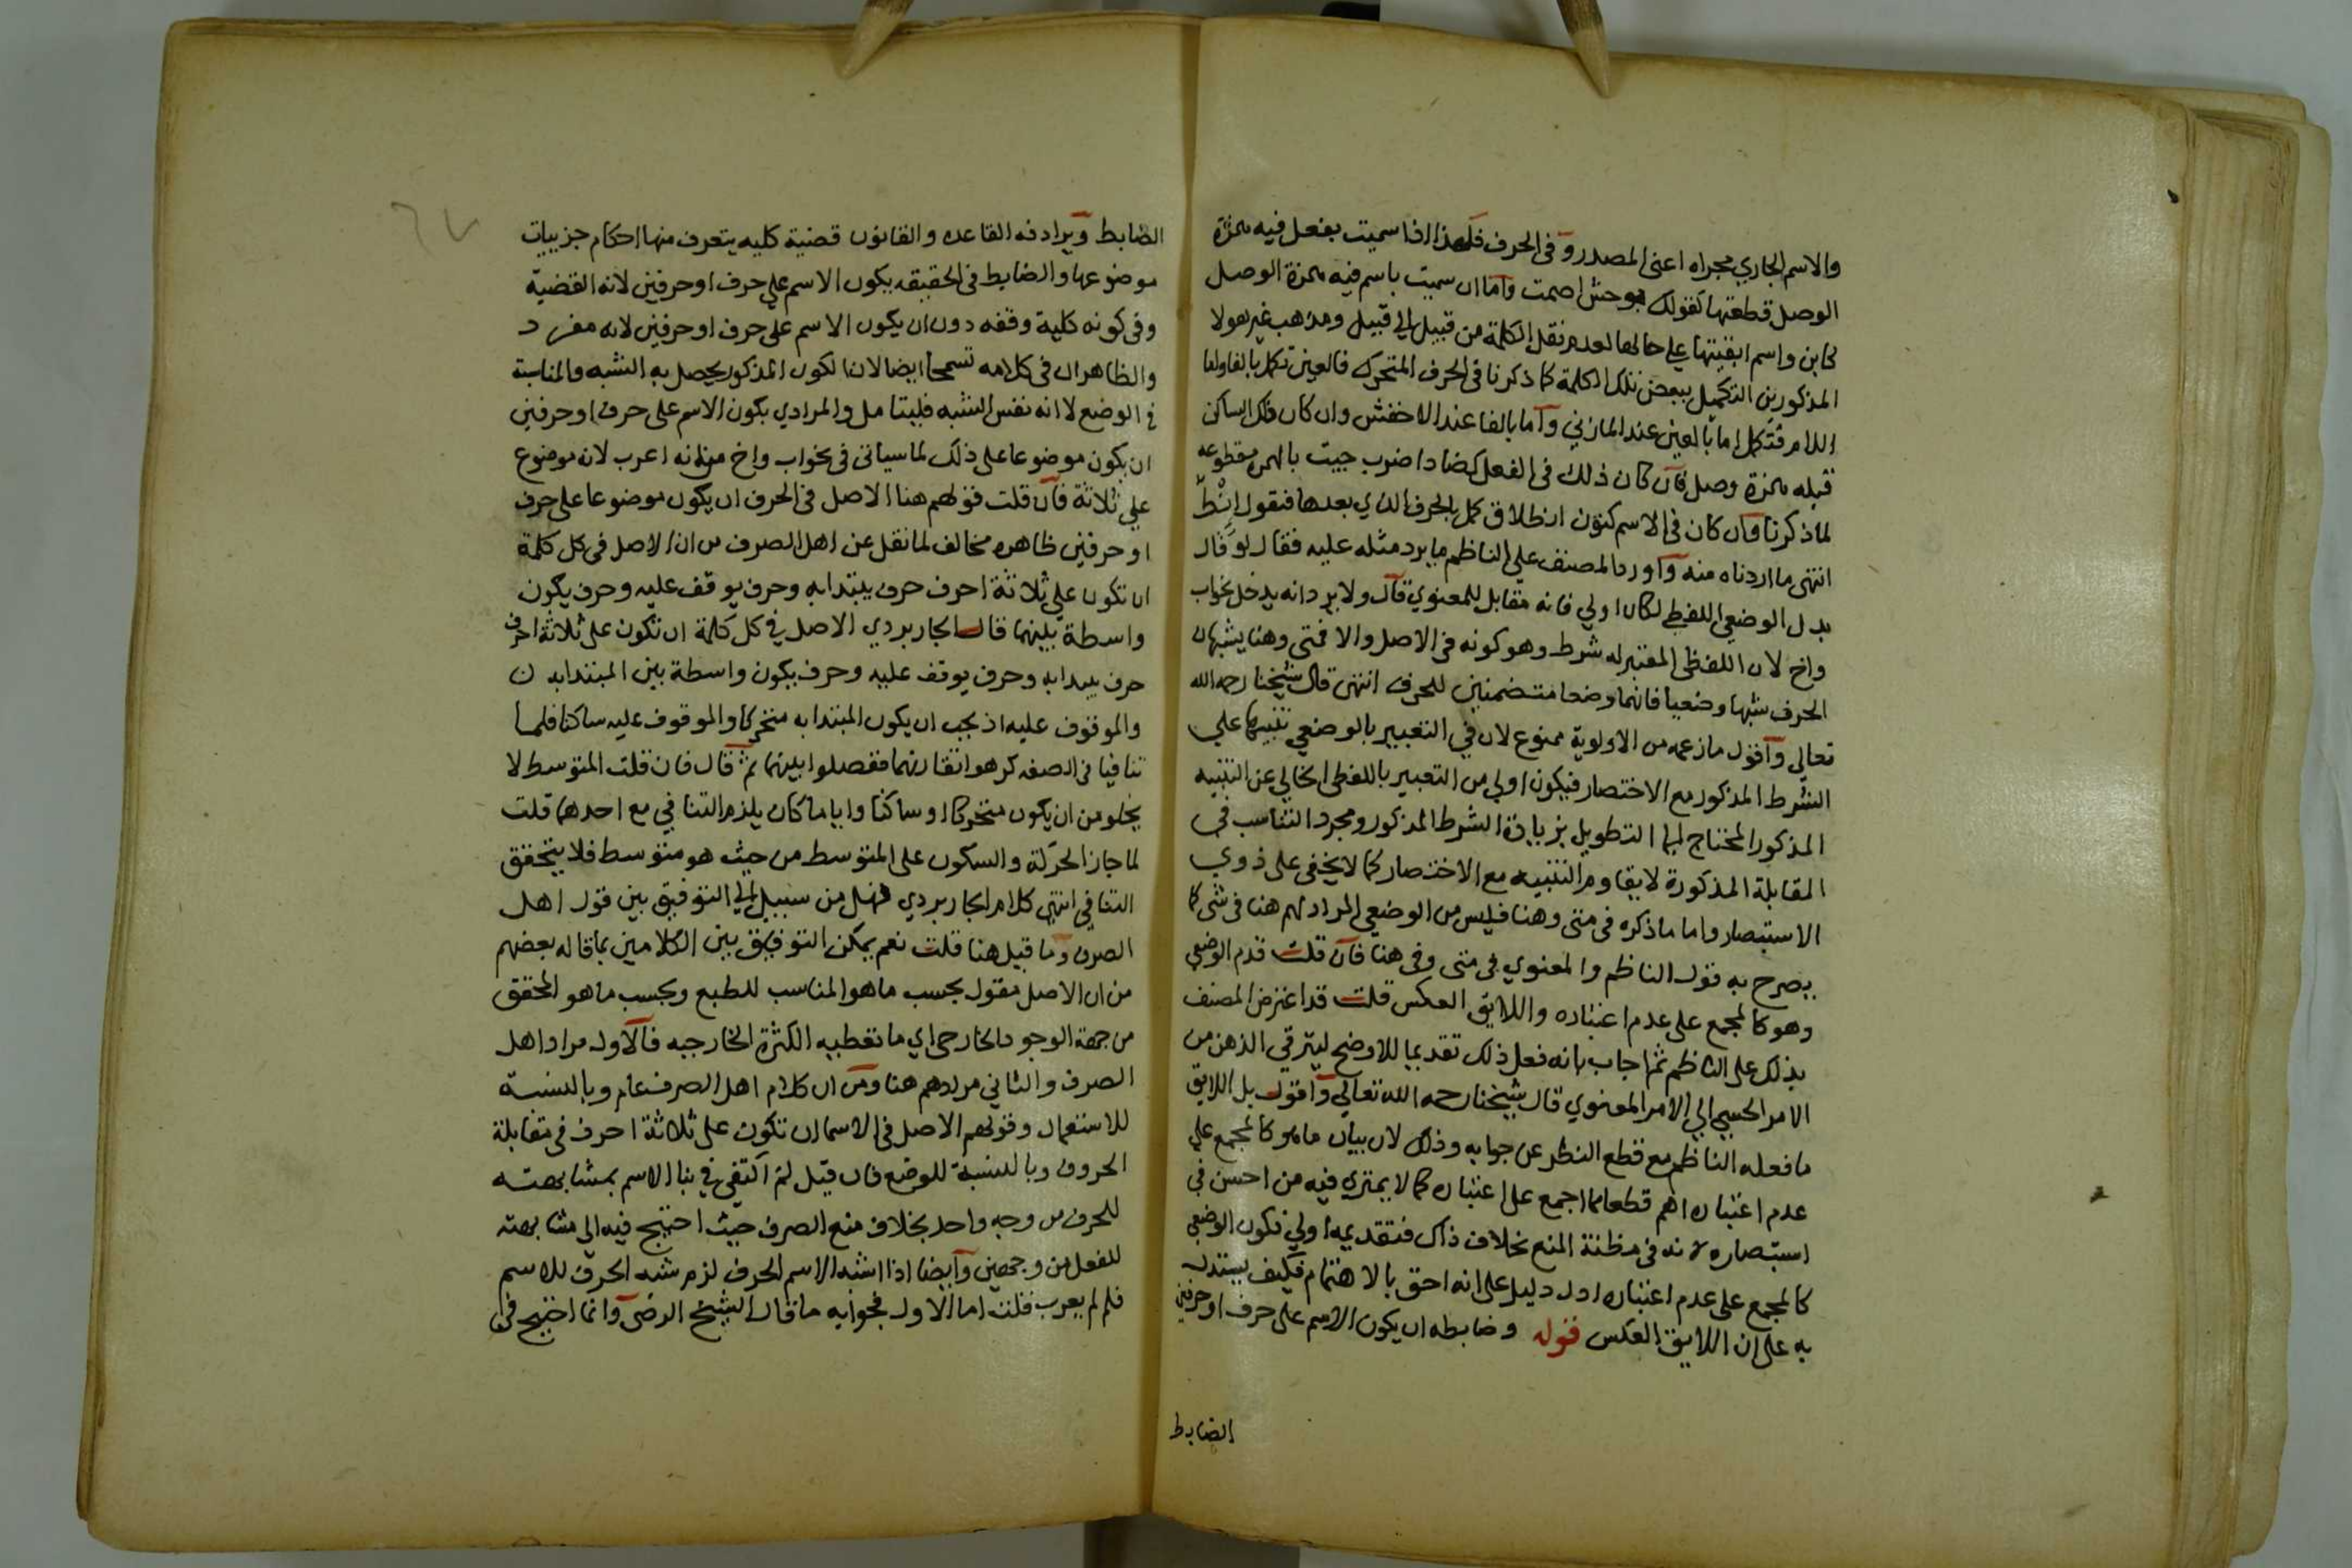 والاسم الجاري مجراه اعني المصدر وفي الحرف فلهذا اذا سميت بفعل فيه همزة
الوصل قطعتها كقولك بوحش اصمت واما ان سميت باسم فيه همزة الوصل
كابن واسم ابقيتها على حالها لعدم نقل الكلمة من قبيل الى قبيل ومذهب غير هولا
المذكورين التكميل ببعض تلك الكلمة كما ذكرنا في الحرف المتحرك فالعين تكمل بالفا ولفا
اللام فتكمل اما بالعين عند المازني واما بالفا عند الاخفش وان كان ذلك الساكن
قبله همزة وصل فان كان ذلك في الفعل كضاد اضرب جيت بالهمزة مقطوعه
لما ذكرنا وان كان في الاسم كنون انطلاق كمل بالحرف الذي بعدها فتقول انط
انتهى ما اردناه منه واورد المصنف على الناظم ما يرد مثله عليه فقال لو قال
بدل الوضعي اللفظي لكان اولي فانه مقابل للمعنوي قال ولا يرد انه يدخل نحواب
واخ لان اللفظي المعتبر له شرط وهو كونه في الاصل والا فمتى وهنا يشبهان
الحرف شبها وضعيا فانهما وضعا متضمنين للحرف انتهى قال شيخنا رحمه الله
تعالي واقول ما زعمه من الاولوية ممنوع لان في التعبير بالوضعي تنبيها علي
الشرط المذكور مع الاختصار فيكون اولي من التعبير باللفظي الخالي عن التنبيه
المذكور المحتاج لهما التطويل بزيادة الشرط المذكور ومجرد التناسب في
المقابلة المذكورة لا يقاوم التنبيه مع الاختصار كما لا يخفى على ذوي
الاستبصار واما ما ذكره في متى وهنا فليس من الوضعي المراد لهم هنا في شى كما
يصرح به قول الناظم والمعنوي في متى وفي هنا فان قلت قدم الوضعي
وهو كالمجمع على عدم اعتباره واللايق العكس قلت قد اعترض المصنف
بذلك على الناظم ثم اجاب بانه فعل ذلك تقديما للاوضح ليترقي الذهن من
الامر الحسي الي الامر المعنوي قال شيخنا رحمه الله تعالي واقول بل اللايق
ما فعله الناظم مع قطع النظر عن جوابه وذلك لان بيان ما هو كالمجمع علي
عدم اعتباره اهم قطعا مما اجمع على اعتباره كما لا يمتري فيه من احسن في
استبصاره لانه في مظنة المنع بخلاف ذاك فتقديمه اولي فكون الوضعي
كالمجمع على عدم اعتباره ادل دليل على انه احق بالاهتمام فكيف يستدل
به على ان اللايق العكس قوله وضابطه ان يكون الاسم على حرف او حرفين
الضابط
الضابط ويرادفه القاعده والقانون قضية كليه يتعرف منها احكام جزييات
موضوعها والضابط في الحقيقه يكون الاسم على حرف او حرفين لانه القضية
وفي كونه كلية وقفه دون ان يكون الاسم على حرف او حرفين لانه مفرد
والظاهر ان في كلامه تسمحا ايضا لان لكون المذكور يحصل به الشبه والمناسبة
في الوضع لا انه نفس الشبه فليتامل والمراد ي بكون الاسم على حرف او حرفين
ان يكون موضوعا على ذلك لما سياتي في نحواب واخ من انه اعرب لانه موضوع
علي ثلاثة فان قلت قولهم هنا الاصل في الحرف ان يكون موضوعا على حرف
او حرفين ظاهره مخالف لما نقل عن اهل الصرف من ان الاصل في كل كلمة
ان تكون علي ثلاثة احرف حرف يبتدا به وحرف يوقف عليه وحرف يكون
واسطة بينهما قال الجاربردي الاصل في كل كلمة ان تكون على ثلاثة احرف
حرف يبدا به وحرف يوقف عليه وحرف يكون واسطة بين المبتدا به ن
والموقوف عليه اذ يجب ان يكون المبتدا به متحركا والموقوف عليه ساكنا فلما
تنافيا في الصفه كرهوا اتقارنهما ففصلوا بينهما ثم قال فان قلت المتوسط لا
يخلو من ان يكون متحركا او ساكنا وايا ما كان يلزم التنافي مع احدهما قلت
لما جاز الحركة والسكون على المتوسط من حيث هو متوسط فلا يتحقق
التنافي انتهى كلام الجاربردي فهل من سبيل الى التوفيق بين قول اهل
الصرف وما قيل هنا قلت نعم يمكن التوفيق بين الكلامين بما قاله بعضهم
من ان الاصل مقول بحسب ما هو المناسب للطبع وبحسب ما هو المحقق
من جهة الوجود الخارجي اي ما تعطيه الكثرة الخارجيه فالاول مراد اهل
الصرف والثاني مرادهم هنا ومن ان كلام اهل الصرف عام وبالنسبة
للاستعمال وقولهم الاصل في الاسما ان تكون على ثلاثة احرف في مقابلة
الحروف وبالنسبة للوضع فان قيل لم اكتفي في بنا الاسم بمشابهته
للحرف من وجه واحد بخلاف منع الصرف حيث احتيج فيه الى مشابهته
للفعل من وجهين وايضا اذا اشبه الاسم الحرف لزم شبه الحرف للاسم
فلم لم يعرب قلت اما الاول فجوابه ما قال الشيخ الرضى وانما احتيج في